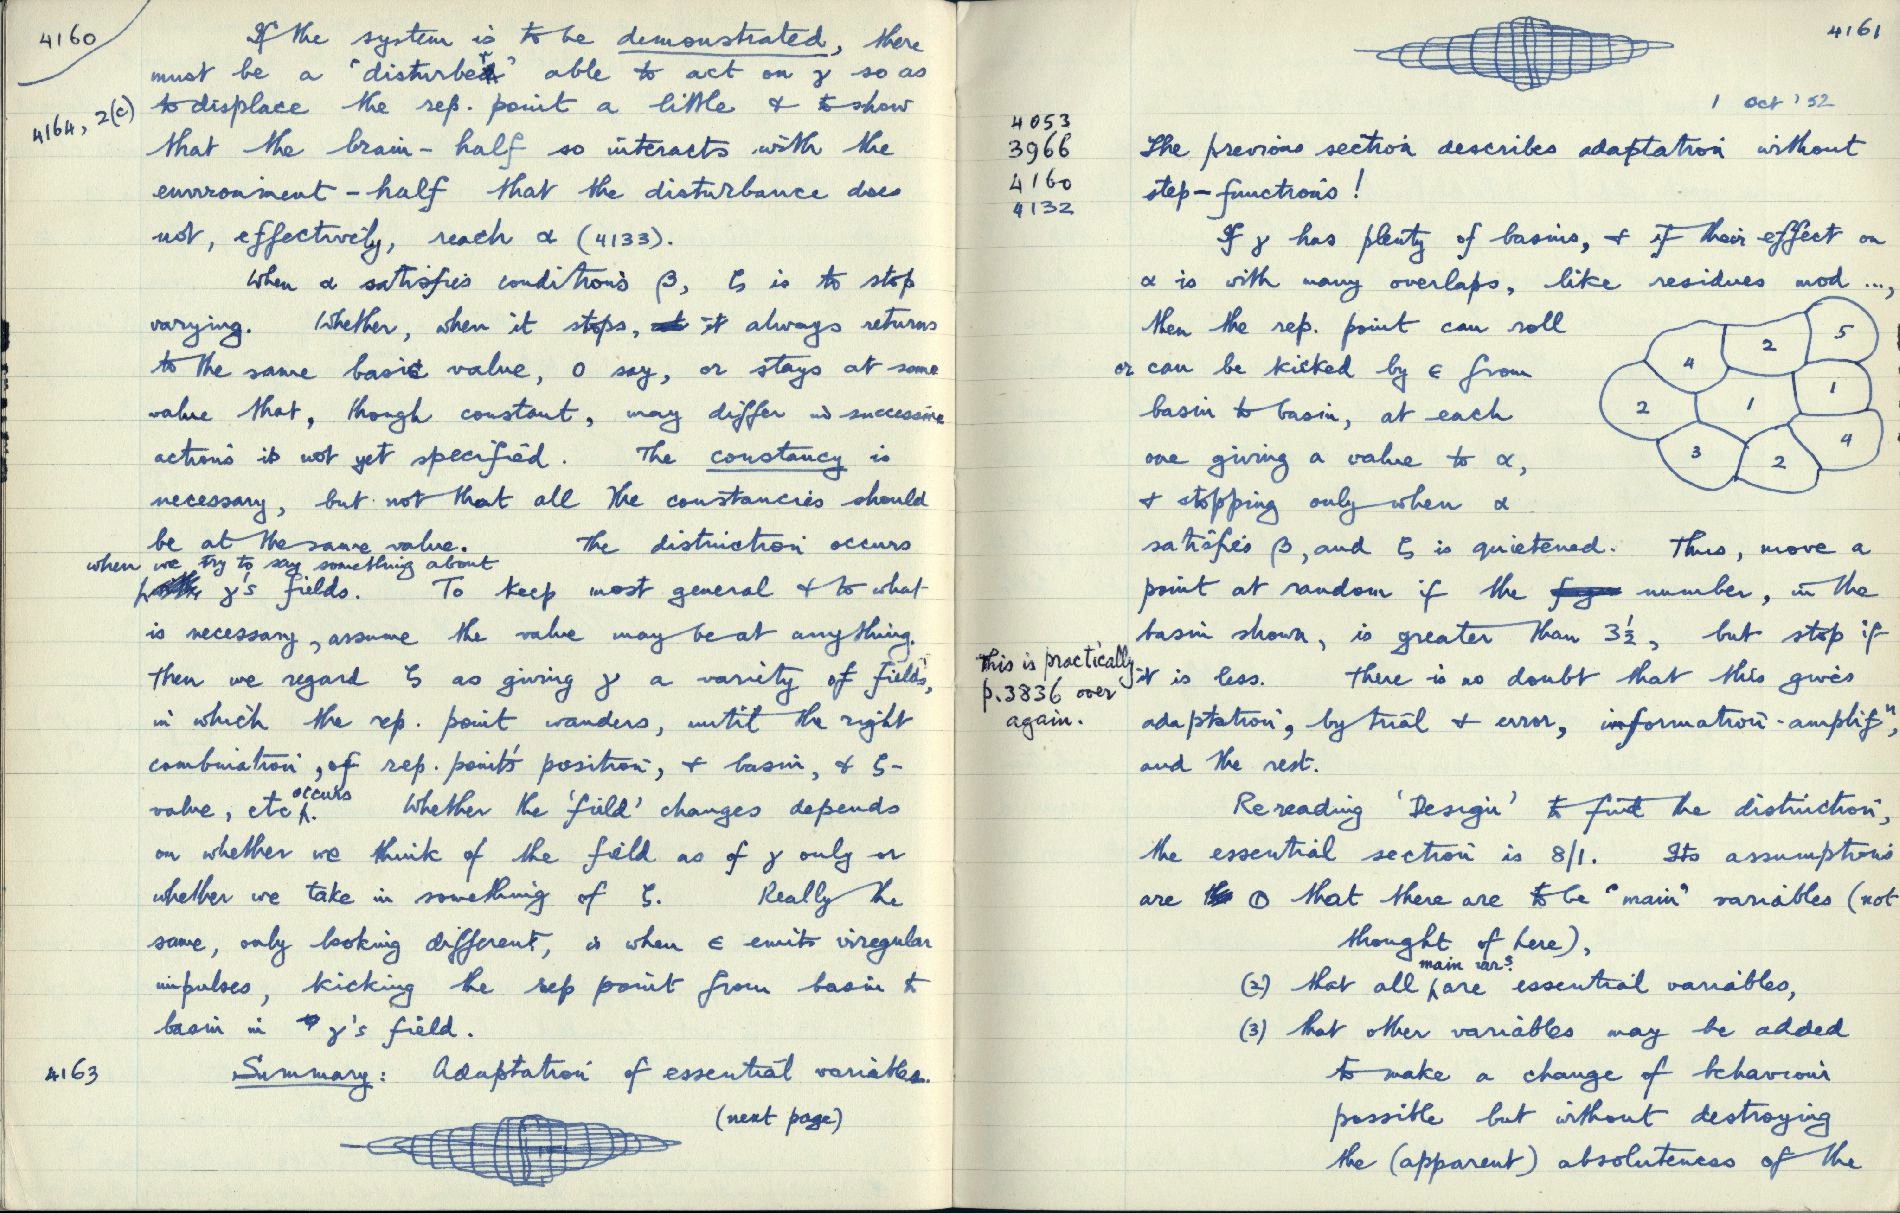 4160
If the system is to be demonstrated, there
must be a "disturber" able to act on γ so as
4164, 2(c)
to displace the rep. point a little & to show
that the brain-half so interacts with the
environment-half that the disturbance does
not, effectively, reach α (4133).
When α satisfies conditions β, ζ is to stop
varying. Whether, when it stops, it always returns
to the same basic value, 0 say, or stays at some
value that, though constant, may differ in successive
actions is not yet specified. The constancy is
necessary, but not that all the constancies should
be at the same value. The distinction occurs
when we try to say something about
γ's fields. To keep most general & to what
is necessary, assume the value may be at anything.
Then we regard ζ as giving γ a variety of fields,
in which the rep. point wanders, until the right
combination, of rep. point's position, & basin, & ζ-
value, etc occurs. Whether the 'field' changes depends
on whether we think of the field as of γ only or
whether we take in something of ζ. Really the
same, only looking different, is when ε emits irregular
impulses, kicking the rep point from basin to
basin in γ's field.
4163
Summary: Adaptation of essential variables.
(next page)
4161
1 Oct '52
4053
3966
4160
4132
The previous section describes adaptation without
step-functions!
If γ has plenty of basins, & if their effect on
α is with many overlaps, like residues mod ...,
then the rep. point can roll
or can be kicked by ε from
basin to basin, at each
one giving a value to α,
& stopping only when α
5
2
4
1
2
1
4
3
2
satisfies β, and ζ is quietened. Thus, move a
point at random if the number, in the
basin shown, is greater than 3½, but stop if
it is less. There is no doubt that this gives
This is practically
p.3836 over
again.
adaptation, by trial & error, information-amplifⁿ,
and the rest.
Rereading 'Design' to find the distinction,
the essential section is 8/1. Its assumptions
are ① that there are to be "main" variables (not
thought of here),
(2) that all main varˢ. are essential variables,
(3) that other variables may be added
to make a change of behaviour
possible but without destroying
the (apparent) absoluteness of the